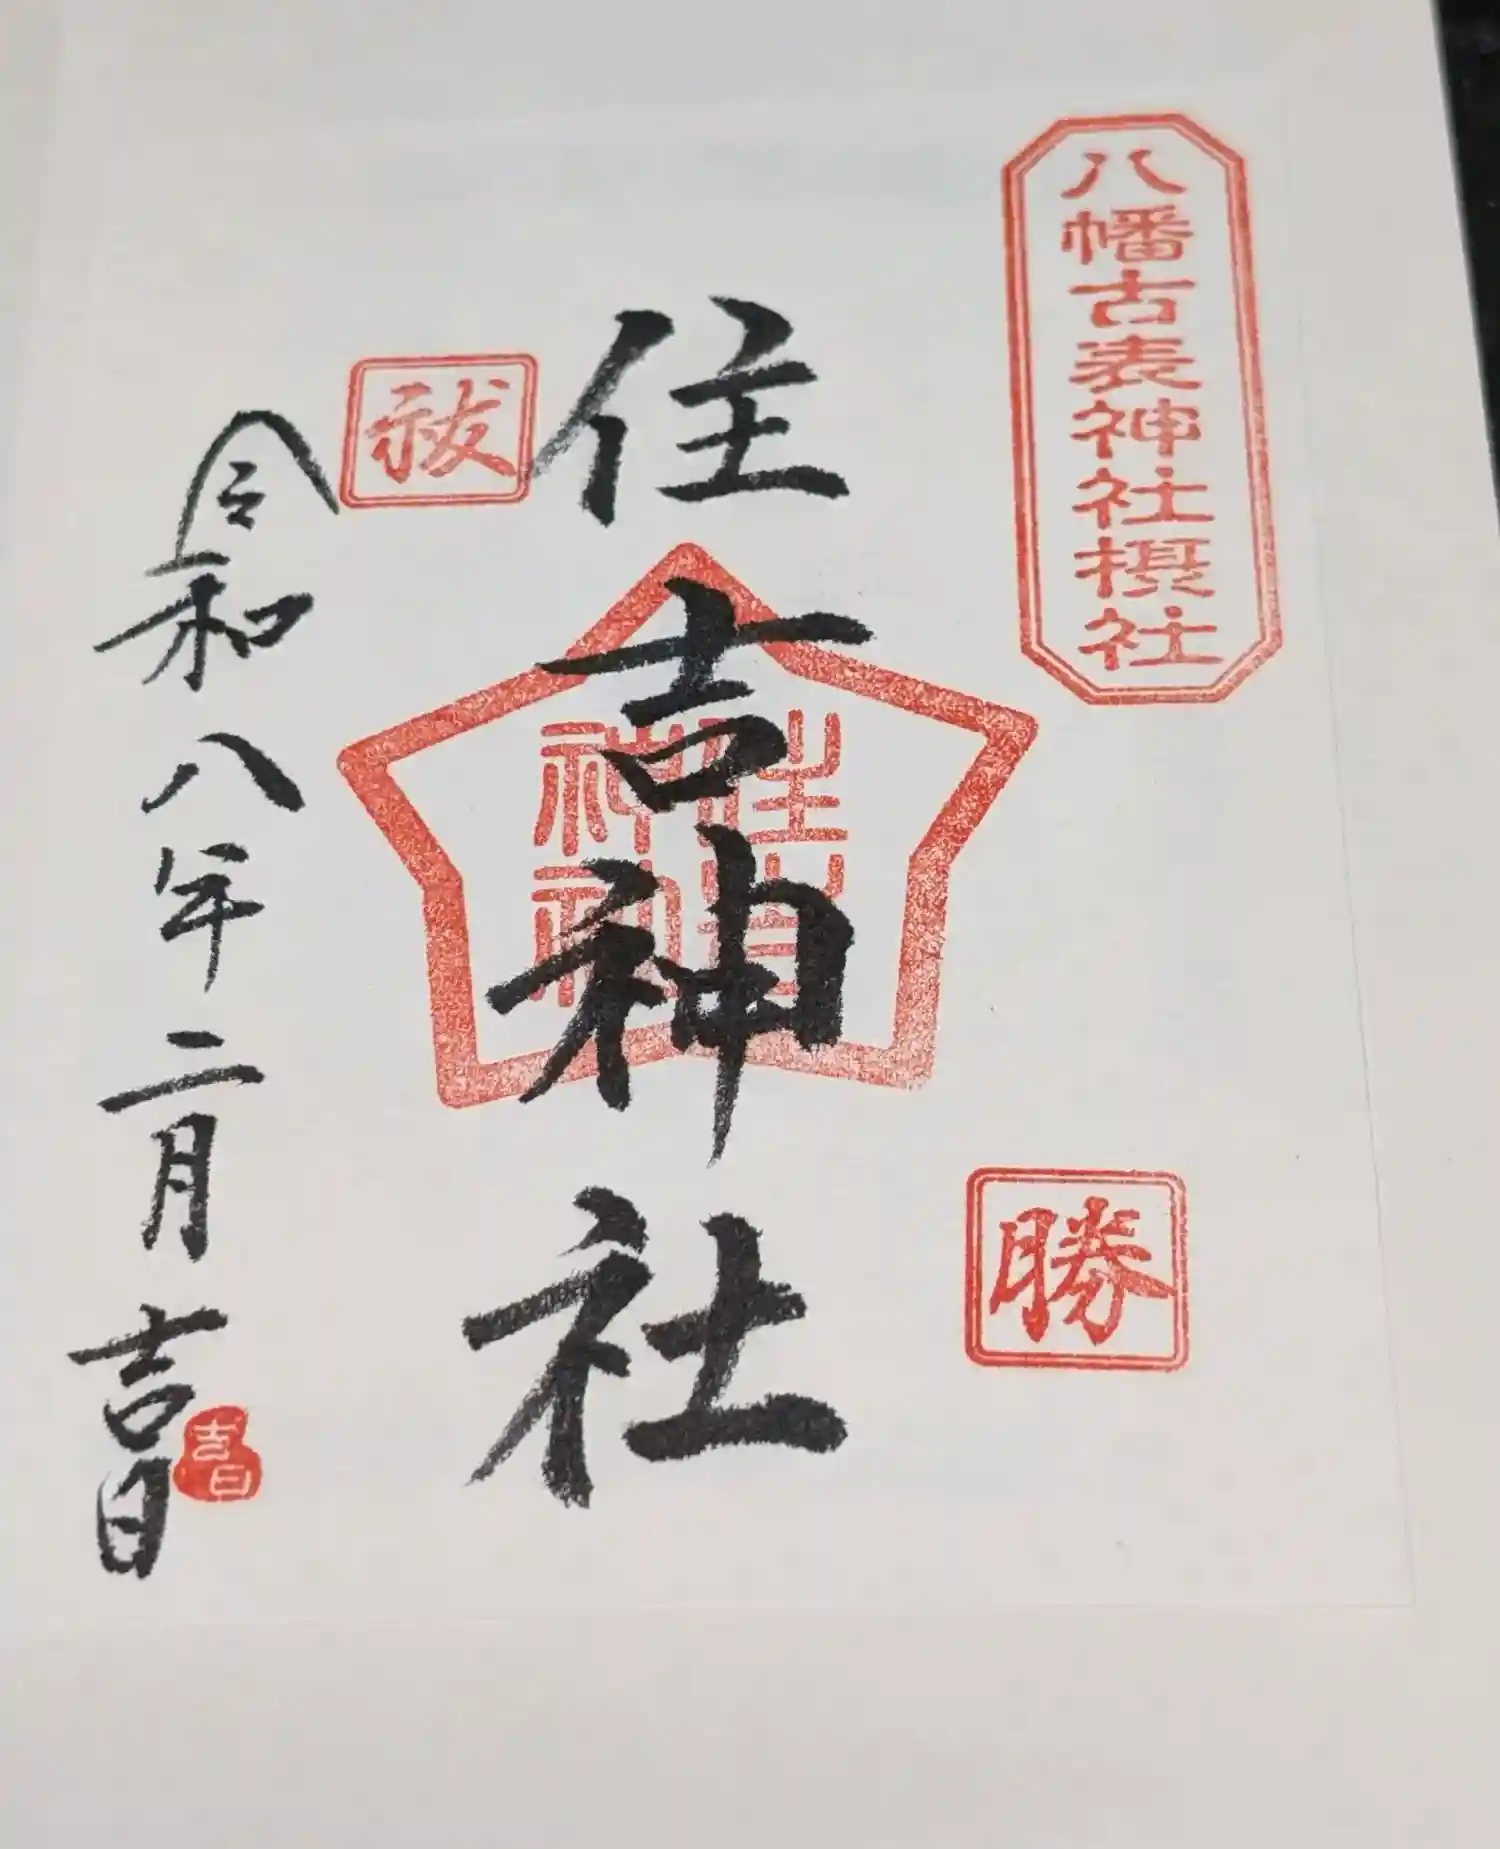 八幡古表神社摂社
勝
住吉神社
住吉
神
祓
令和八年二月吉日
吉日